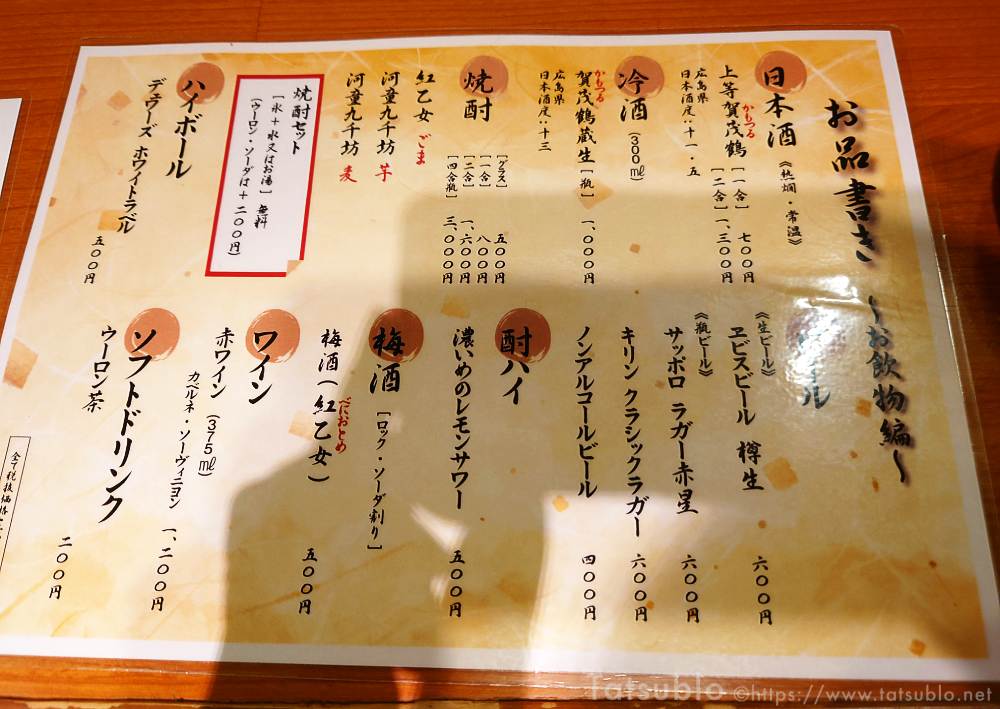 お品書き ～お飲物編～
日本酒 《熱燗・常温》
上等賀茂鶴 [一合] 七〇〇円
かもつる
[二合] 一、三〇〇円
広島県
日本酒度：＋一・五
冷酒 (300㎖)
賀茂鶴蔵生 [瓶] 一、〇〇〇円
かもつる
広島県
日本酒度：＋三
焼酎
[グラス] 五〇〇円
[一合] 八〇〇円
[二合] 一、六〇〇円
[四合瓶] 三、〇〇〇円
紅乙女 ごま
河童九千坊 芋
河童九千坊 麦
焼酎セット
[氷＋水又はお湯] 無料
(ウーロン・ソーダは＋二〇〇円)
ハイボール
デュワーズ ホワイトラベル 五〇〇円
ール
《生ビール》
ヱビスビール 樽生 六〇〇円
《瓶ビール》
サッポロ ラガー赤星 六〇〇円
キリン クラシックラガー 六〇〇円
ノンアルコールビール 四〇〇円
酎ハイ
濃いめのレモンサワー 五〇〇円
梅酒 [ロック・ソーダ割り]
梅酒(紅乙女) 五〇〇円
べにおとめ
ワイン
赤ワイン (375㎖)
カベルネ・ソーヴィニヨン 一、二〇〇円
ソフトドリンク
ウーロン茶 二〇〇円
全て税抜価格
Tatsublo ©https://www.tatsublo.net